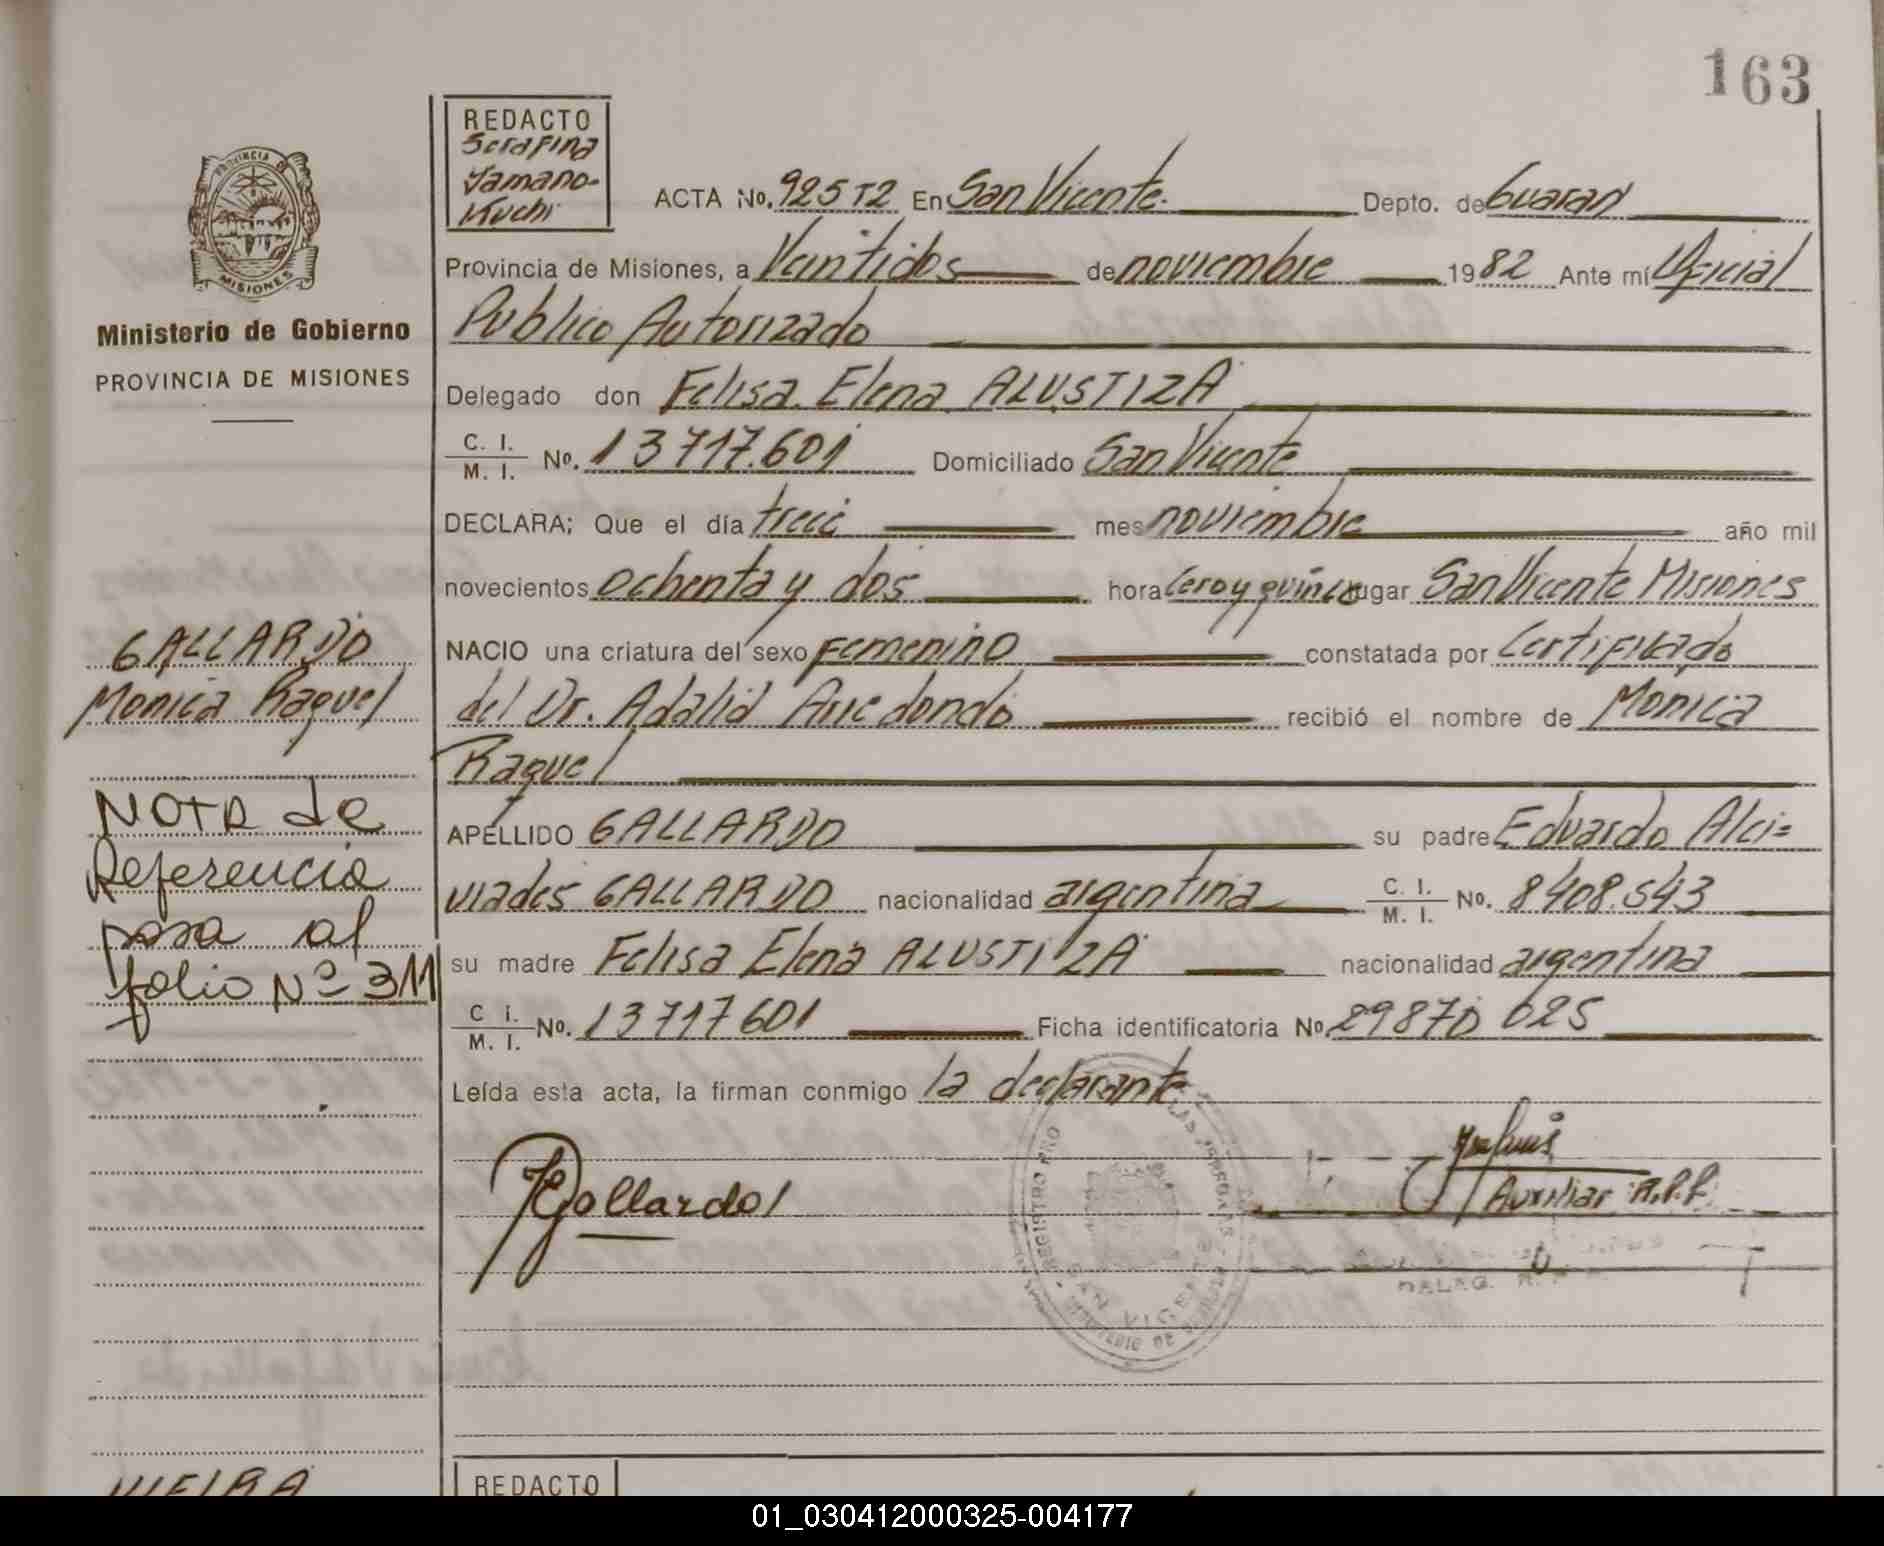 163
REDACTO
Serafina
Yamano-
Kuchi
ACTA No. 925 T2 En San Vicente. Depto. de Guaraní
Provincia de Misiones, a Veintidos de noviembre 1982 Ante mí Oficial
Publico Autorizado
Delegado don Felisa Elena ALUSTIZA
C. I.
M. I. No. 13717.601 Domiciliado San Vicente
DECLARA; Que el día trece mes noviembre año mil
novecientos ochenta y dos hora cero y quince lugar San Vicente Misiones
NACIO una criatura del sexo femenino constatada por Certificado
del Dr. Adalid Arredondo recibió el nombre de Monica
Raquel
APELLIDO GALLARDO su padre Eduardo Alci=
viades GALLARDO nacionalidad argentina C. I.
M. I. No. 8408.543
su madre Felisa Elena ALUSTIZA nacionalidad argentina
C I.
M. I. No. 13717601 Ficha identificatoria No. 29870 025
Leída esta acta, la firman conmigo la declarante
Gallardo
Auxiliar R.P.P.
SAN VICENTE
PROVINCIA DE
MISIONES
Ministerio de Gobierno
PROVINCIA DE MISIONES
GALLARDO
Monica Raquel
NOTA de
Referencia
pasa al
folio Nº 311
VIEIRA
REDACTO
01_030412000325-004177